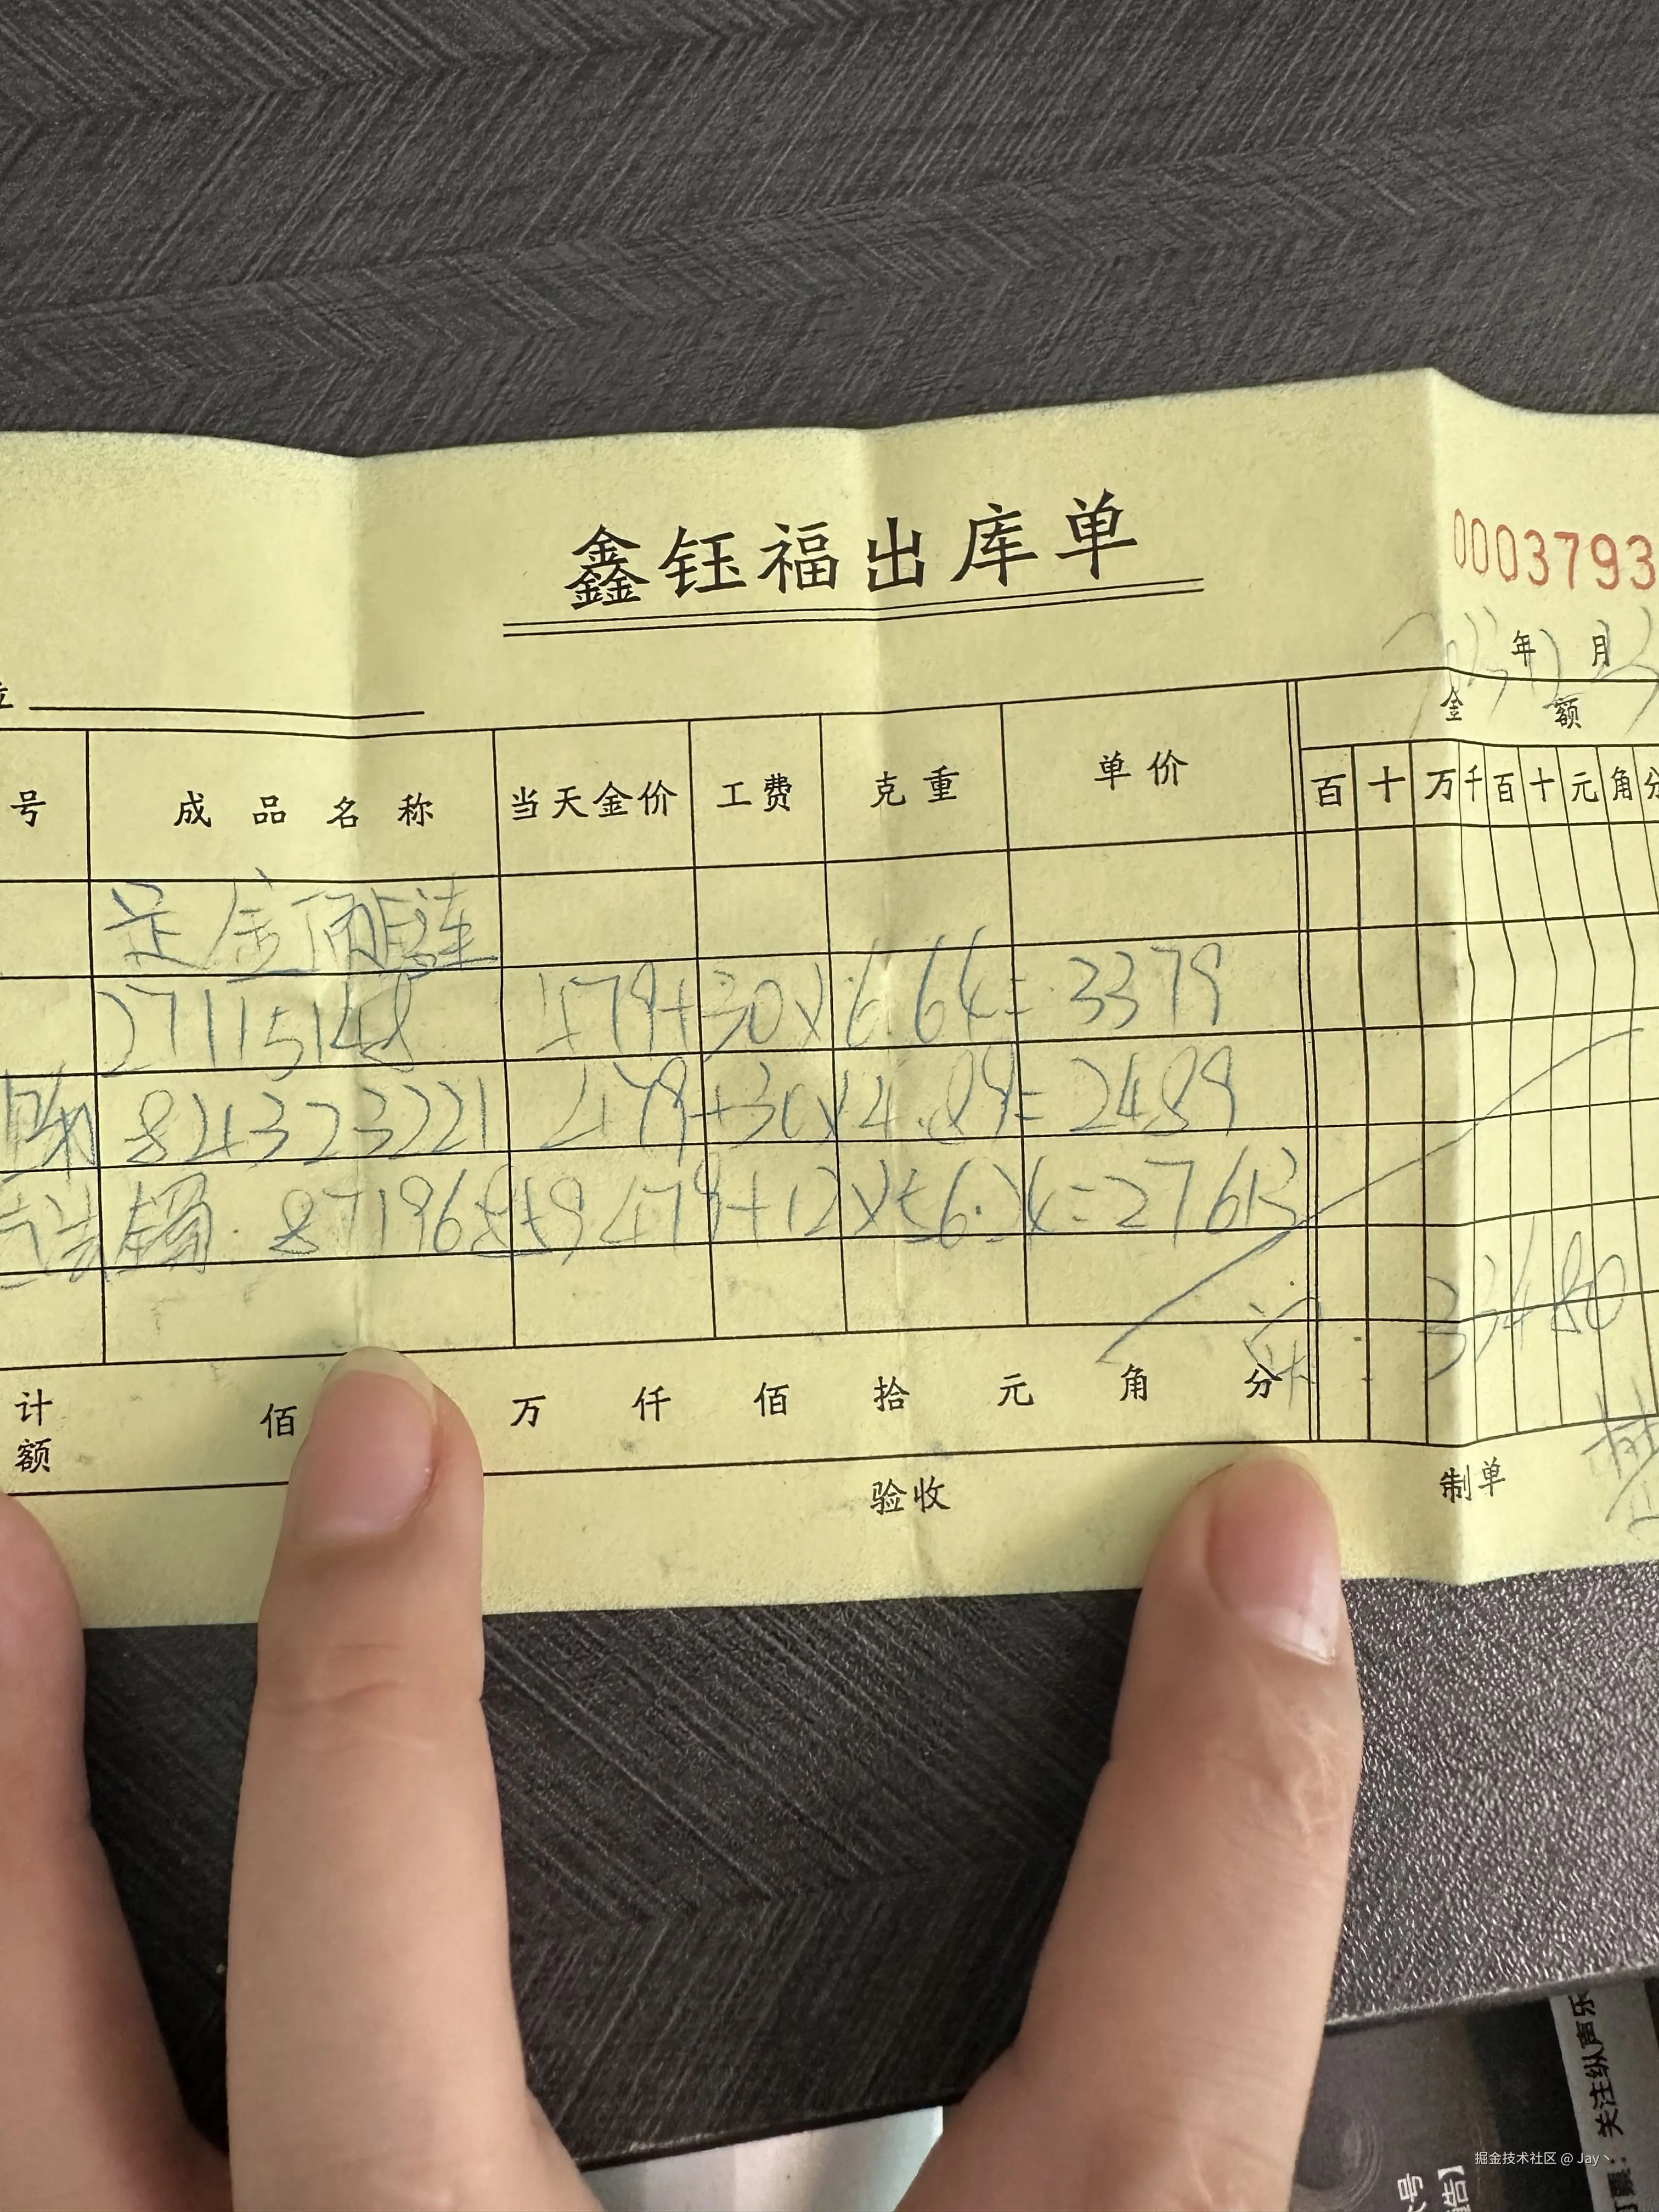 鑫钰福出库单
0003793
年 月
金 额
号 成品名称 当天金价 工费 克重 单价 百 十 万 千 百 十 元 角 分
足金
27115148 479+30×6.64=3379
824323221 479+30×4.89=2489
479+12× =27613
33480
计 佰 万 仟 佰 拾 元 角 分
额
验收 制单
关注纵声乐
掘金技术社区 @ Jay丶